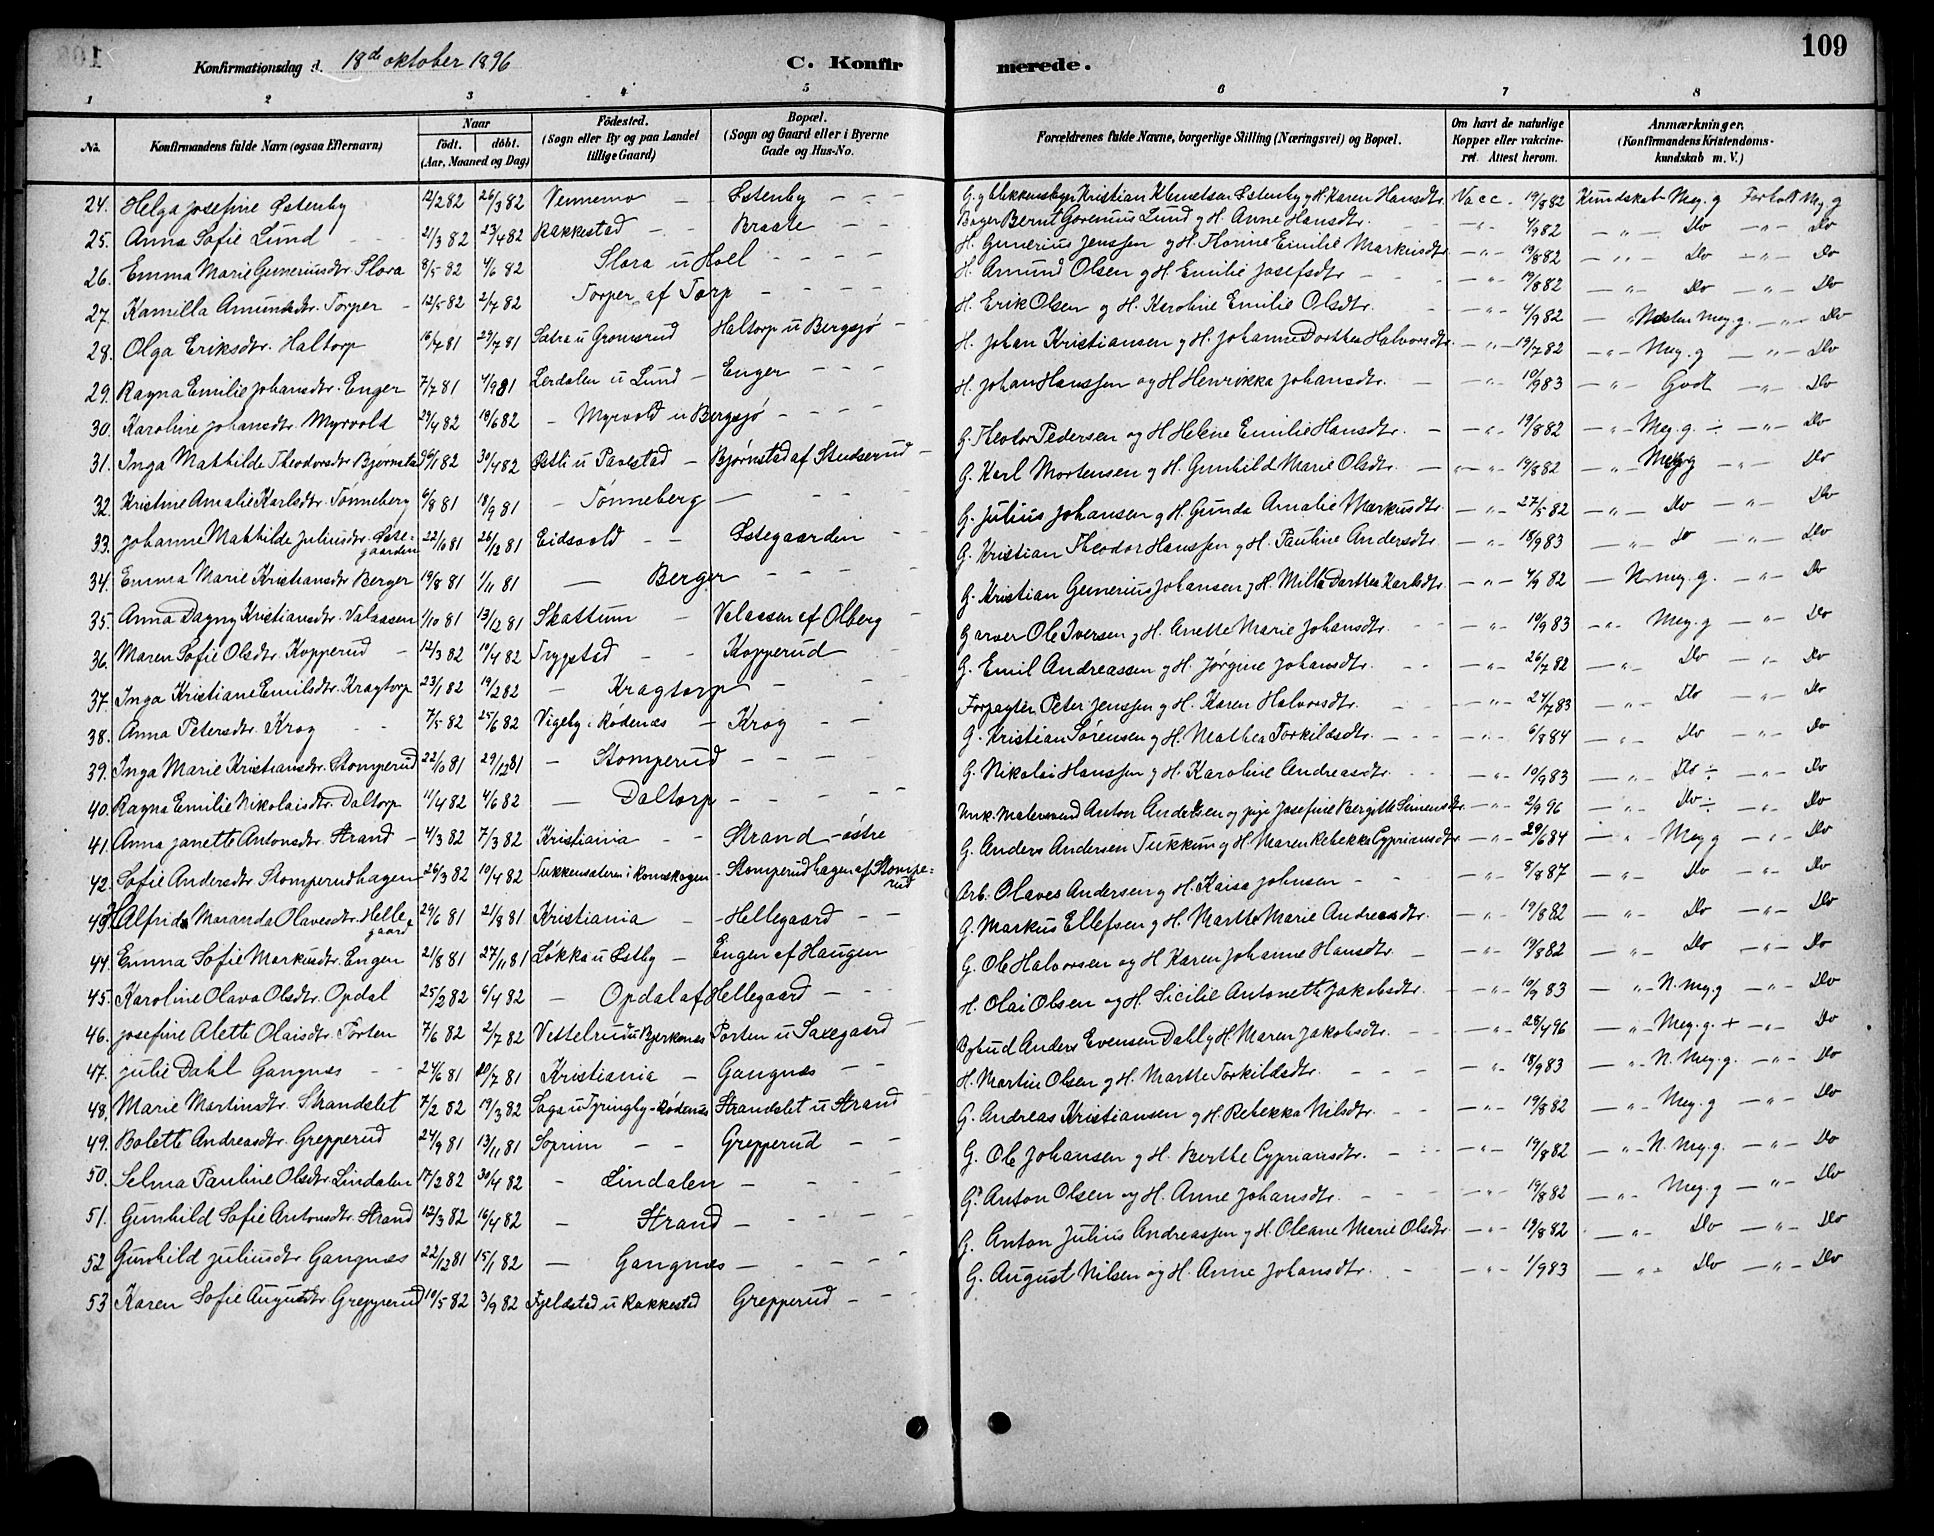 109
Konfirmationsdag d. 18de oktober 1896 C. Konfirmerede.
1 2 3 4 5 6 7 8
No. Konfirmandens fulde Navn (ogsaa Efternavn) Naar födt. döbt. (Aar, Maaned og Dag) Födested. (Sogn eller By og paa Landet tillige Gaard) Bopæl. (Sogn og Gaard eller i Byerne Gade og Hus-No. Forældrenes fulde Navne, borgerlige Stilling (Næringsvei) og Bopæl. Om havt de naturlige Kopper eller vakcineret. Attest herom. Anmærkninger. (Konfirmandens Kristendomskundskab m. V.)
24. Helga Josefine Østenby 12/2 82 26/3 82 Vennemo Østenby G. og Kristian Klemetsen Østenby og H. Karen Hansdtr. Vacc. 19/8 82 Kundskab Meg. g Forhold Mg. g
25. Anna Sofie Lund 21/3 82 23/4 82 Rakkestad Braate Bager Bernt Gorenius Lund og H. Anne Hansdtr. 4/9 82 Do Do
26. Emma Marie Guneriusdtr. Slora 8/5 82 4/6 82 Slora u Hoel H. Gunerius Jenssen og H. Thonine Emilie Markusdtr 19/8 82 Do Do
27. Kamilla Amundsdtr. Torper 12/5 82 2/7 82 Torper af Torp H. Amund Olsen og H. Emilie Josefsdtr 19/8 82 Do Do
28. Olga Eriksdtr. Haltorp 16/4 81 29/7 81 Sætra u Gromsrud Haltorp u Bergsjø H. Erik Olsen og H. Karoline Emilie Olsdtr. 4/9 82 Næsten Meg. g. Do
29. Ragna Emilie Johansdtr. Enger 7/7 81 4/9 81 Lerdalen u Lund Enger H. Johan Kristiansen og H. Johanne Dorthea Halvorsdtr. 19/7 82 Meg. g Do
30. Karoline Johansdtr. Myrvold 29/4 82 18/6 82 Myrvold u Bergsjø H. Johan Hanssen og H Henrikka Johansdtr. 10/9 83 Godt Do
31. Inga Mathilde Theodorsdtr Bjørnstad 6/1 82 30/4 82 Østli u Pavestad Bjørnstad af Studserud G. Theodor Pedersen og H Helene Emilie Hansdtr. 19/8 82 Meg. g. ÷ Do
32. Kristine Amalie Karlsdtr. Tønneberg 6/8 81 18/9 81 Tønneberg G. Karl Mortensen og H. Gunhild Marie Olsdtr. 19/8 82 Meg g Do
33. Johanne Mathilde Juliusdtr. Østegaarden 22/10 81 26/12 81 Eidsvold Østegaarden G. Julius Johansen og H. Gunda Amalie Markusdtr. 27/5 82 Do Do
34. Emma Marie Kristiansdtr Berger 19/8 81 1/11 81 Berger G. Kristian Theodor Hanssen og H. Pauline Andersdtr. 18/9 83 Do Do
35. Anna Dagny Kristiansdtr. Valaasen 1/10 81 13/12 81 Skattum Valaasen af Olberg G. Kristian Gunerius Johansen og H. Milla Dorthea Karlsdtr. 4/9 82 N. meg. g. Do
36. Maren Sofie Olsdtr. Kopperud 12/3 82 10/4 82 Trygstad Kopperud Garver Ole Iversen og H. Anette Marie Johansdtr. 10/9 83 Meg. g Do
37. Inga Kristiane Emilsdtr. Kragtorp 23/1 82 19/2 82 Kragtorp G. Emil Andreassen og H. Jørgine Johansdtr. 26/7 82 Do Do
38. Anna Petersdtr. Krog 7/5 82 25/6 82 Vigeby i Rødenæs Krog Forpagter Peter Jenssen og H. Karen Halvorsdtr. 24/7 83 Do Do
39. Inga Marie Kristiansdtr. Stomperud 22/10 81 29/12 81 Stomperud G. Kristian Sørensen og H. Mathea Torkildsdtr. 6/8 84 Do Do
40. Ragna Emilie Nikolaisdtr. Daltorp 11/4 82 4/6 82 Daltorp G. Nikolai Hanssen og H. Karoline Andreasdtr. 10/9 83 Do ÷ Do
41. Anna Janette Antonsdtr. Strand 4/3 82 7/3 82 Kristiania Strand østre Unk. Malersvend Anton Andersen og pige Josefine Bergitte Simensdtr. 2/9 96 Do ÷ Do
42. Sofie Andersdtr Stomperudhagen 26/3 82 10/4 82 Tukkensæteren i Romskogen Stomperudhagen af Stomperud G. Anders Andersen Tukkun og H. Maren Rebekka Cypriansdtr 29/6 84 Meg g Do
43. Alfrida Maranda Olavesdtr. Hellegaard 29/6 81 21/8 81 Kristiania Hellegaard Arb. Olaves Andersen og H. Kaisa Johnsen 8/8 87 Do Do
44. Emma Sofie Markusdtr. Engen 21/8 81 27/11 81 Løkka u Østby Engen af Haugen G. Markus Ellefsen og H. Marthe Marie Andreasdtr. 19/8 82 Do Do
45. Karoline Olava Olsdtr. Opdal 25/2 82 6/4 82 Opdal af Hellegaard G. Ole Halvorsen og H Karen Johanne Hansdtr. 19/8 82 Do Do
46. Josefine Alette Olaisdtr. Torten 7/6 82 2/7 82 Vettelrud u Bjerkenes Porten u Saxegaard H. Olai Olsen og H. Sicilie Antonette Jakobsdtr. 10/9 83 N. Meg. g Do
47. Julie Dahl Gangnæs 24/6 81 20/7 81 Kristiania Gangnæs Bybud Anders Evensen Dahl og H. Maren Jakobsdtr. 28/4 96 Meg. g. + Do
48. Marie Martinsdtr. Strandslet 7/2 82 19/3 82 Saga u Tyringby - Rødenæs Strandslet u Strand H. Martin Olsen og H. Marthe Torkildsdtr. 18/9 83 N. Meg. g. Do
49. Bolette Andreasdtr. Grepperud 24/9 81 13/11 81 Soprim Grepperud G. Andreas Kristiansen og H. Rebekka Nilsdtr. 19/8 82 Meg. g Do
50. Selma Pauline Olsdtr Lindalen 17/2 82 30/4 82 Lindalen G. Ole Johansen og H. Berthe Cypriansdtr. 19/8 82 N. Meg. g. Do
51. Gunhild Sofie Antonsdtr. Strand 12/3 82 16/4 82 Strand G. Anton Olsen og H. Anne Johansdtr. 19/8 82 Meg. g Do
52 Gunhild Juliusdtr Gangnæs 22/12 81 15/1 82 Gangnæs G. Anton Julius Andreassen og H. Oleane Marie Olsdtr. 19/8 82 Do Do
53 Karen Sofie Augustdtr Grepperud 10/5 82 3/9 82 Fjeldstad u Rakkestad Grepperud G. August Nilsen og H. Anne Johansdtr. 1/9 83 Do Do